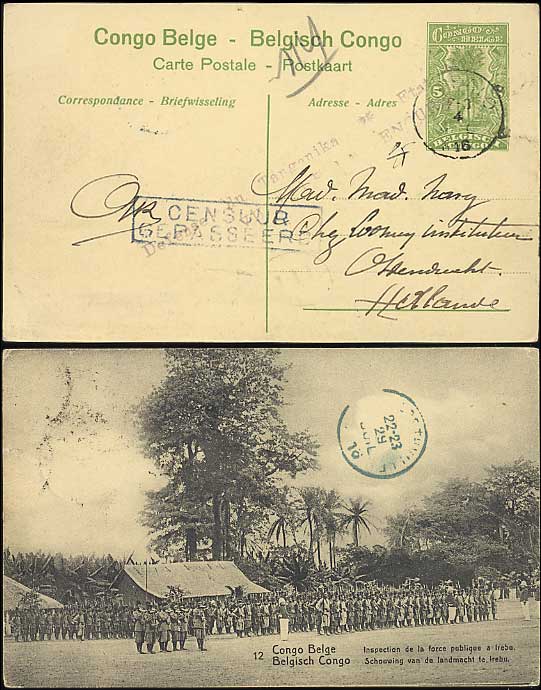 Congo Belge - Belgisch Congo
Carte Postale - Postkaart
Correspondance - Briefwisseling
Adresse - Adres
CONGO
BELGE
5
BELGISCH
CONGO
4
16
Tanganika
CENSUUR
GEPASSEERD
Mad. Mad. Nary
Chez Loomy instituteur
Ossendrecht
Hollande
22-23
29
JUIL
16
12 Congo Belge
Belgisch Congo
Inspection de la force publique a Irebu.
Schouwing van de landmacht te Irebu.